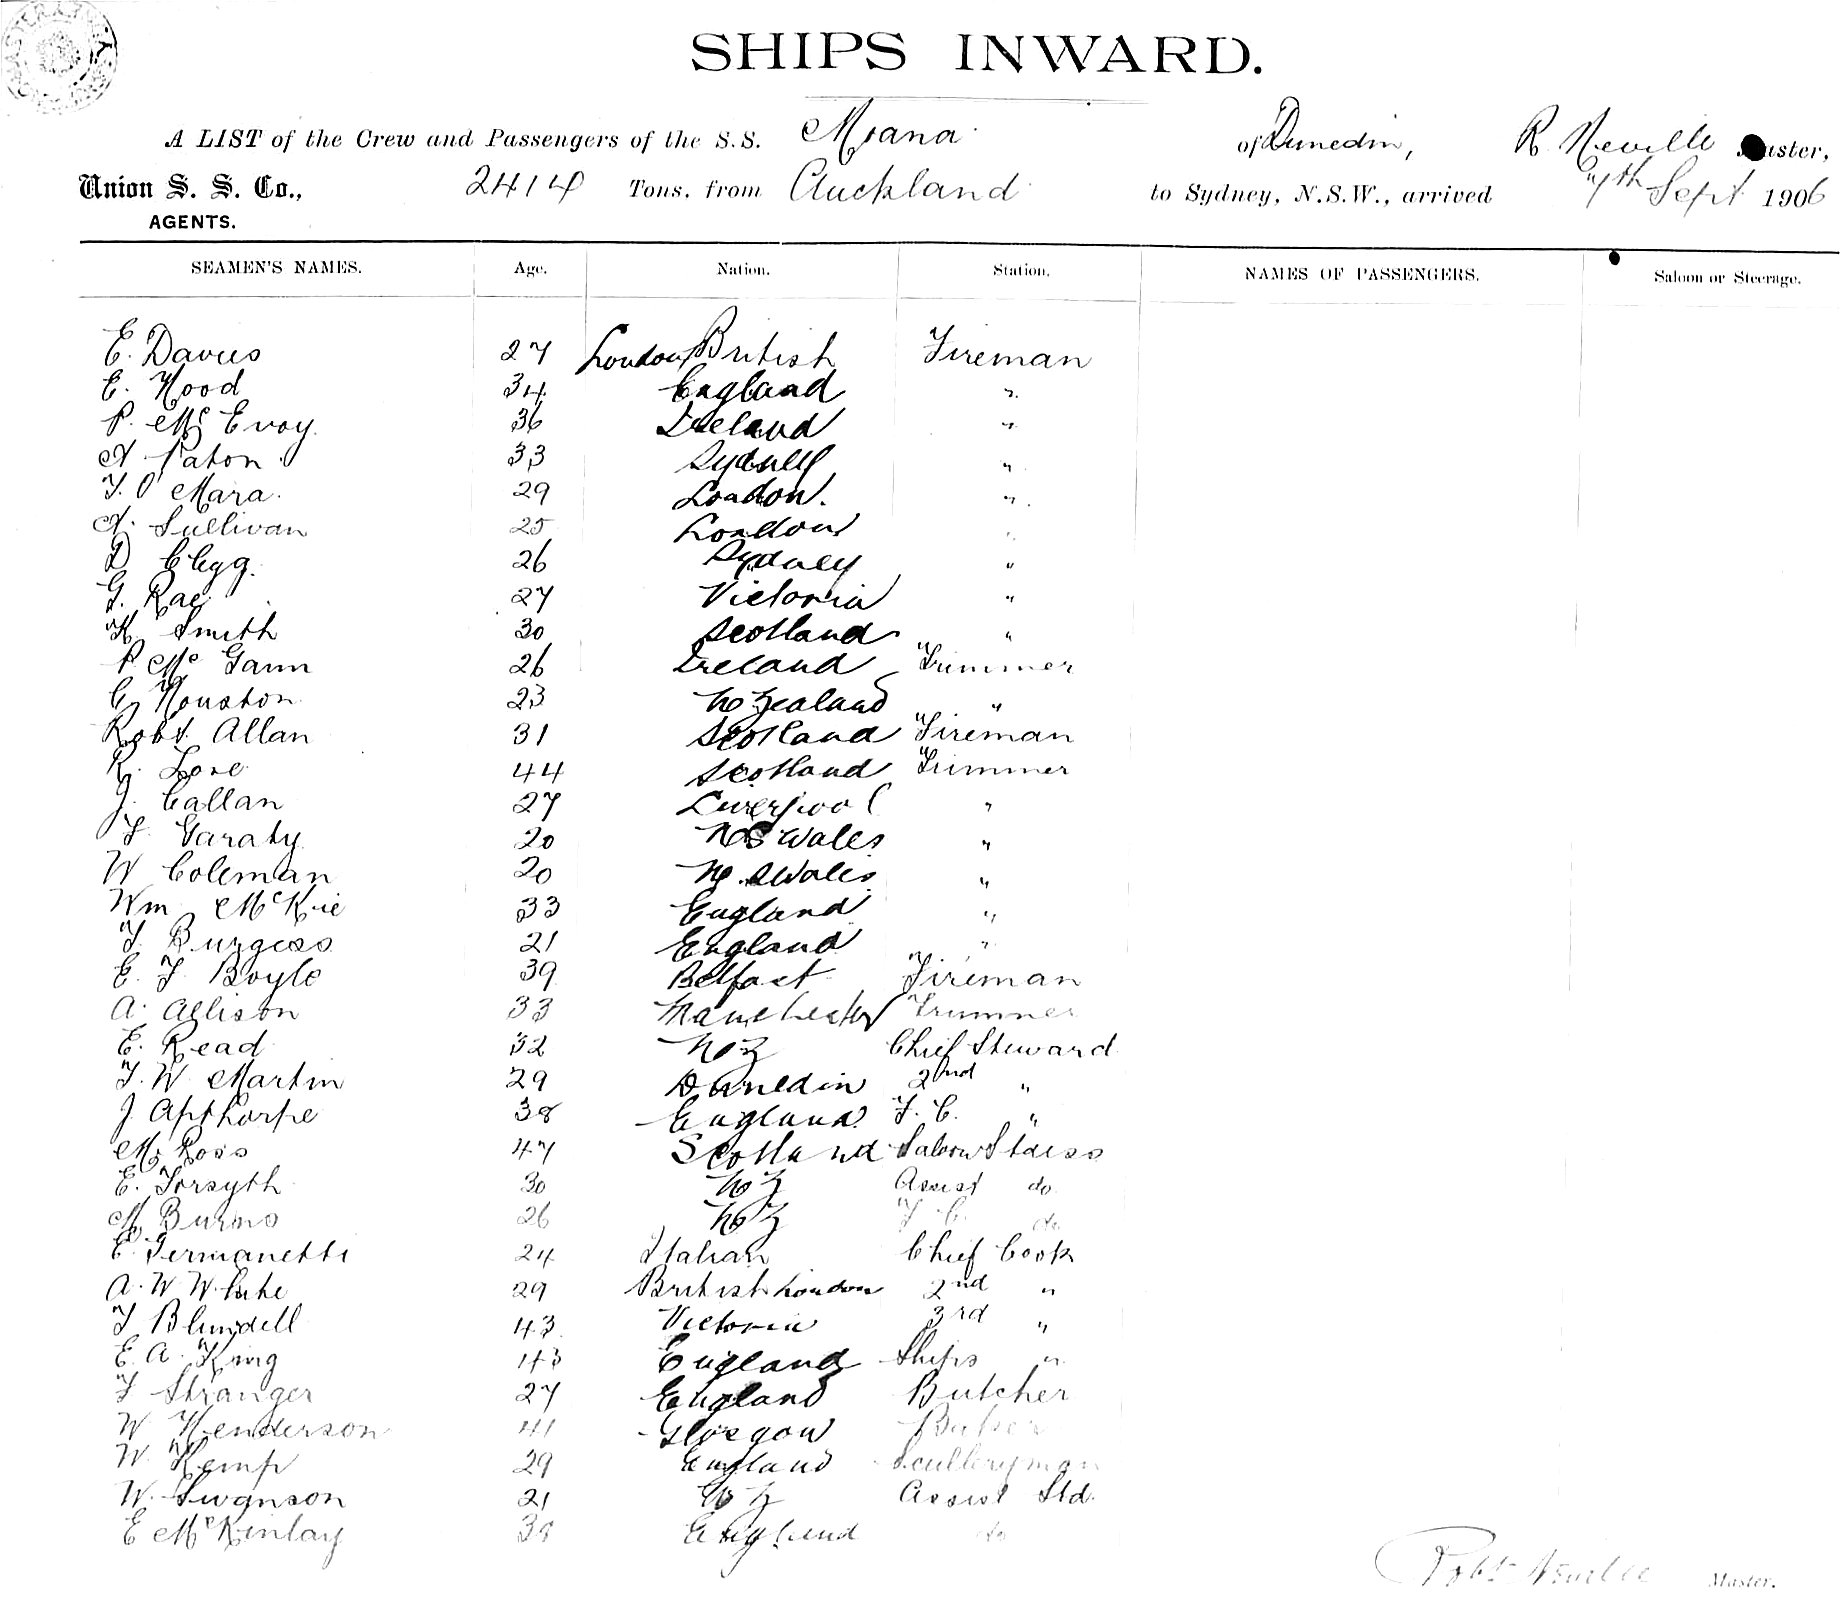 SHIPS INWARD.
A LIST of the Crew and Passengers of the S.S. Moana of Dunedin, R. Neville Master,
Union S. S. Co., 2414 Tons. from Auckland to Sydney, N.S.W., arrived 7th Sept 1906
AGENTS.
SEAMEN'S NAMES. Age. Nation. Station. NAMES OF PASSENGERS. Saloon or Steerage.
E. Davies 27 London British Fireman
E. Hood 34 England "
P. McEvoy. 36 Ireland "
A Paton 33 Sydney "
T. O'Mara. 29 London. "
A. Sullivan 25 London "
D Clegg. 26 Sydney "
G. Rae 27 Victoria "
H Smith 30 Scotland "
P. Mc Gann 26 Ireland Trimmer
G Houston 23 N Zealand "
Robt. Allan 31 Scotland Fireman
R. Love 44 Scotland Trimmer
J. Callan 27 Liverpool "
T. Garaty 20 N S Wales "
W Coleman 20 N. S Wales "
Wm McKie 33 England "
T. Burgess 21 England "
E. T. Boyle 39 Belfast Fireman
A. Allison 33 Manchester Trimmer
E. Read 32 N Z Chief Steward
T. W Martin 29 Dunedin 2nd "
J Apthorpe 38 England F. C. "
M. Ross 47 Scotland Saloon Stdess
E. Forsyth 30 N Z Assist do
M Burns 26 N Z F C. do
E. Germanetti 24 Italian Chief Cook
A. W White 29 British London 2nd "
T Blundell 43 Victoria 3rd "
E. A. King 43 England Ships "
T Stranger 27 England Butcher
W Henderson 41 Glasgow Baker
W. Kemp 29 England Sculleryman
W. Swanson 21 N Z Assist Std.
E McKinlay 38 England do
Robt Neville Master.